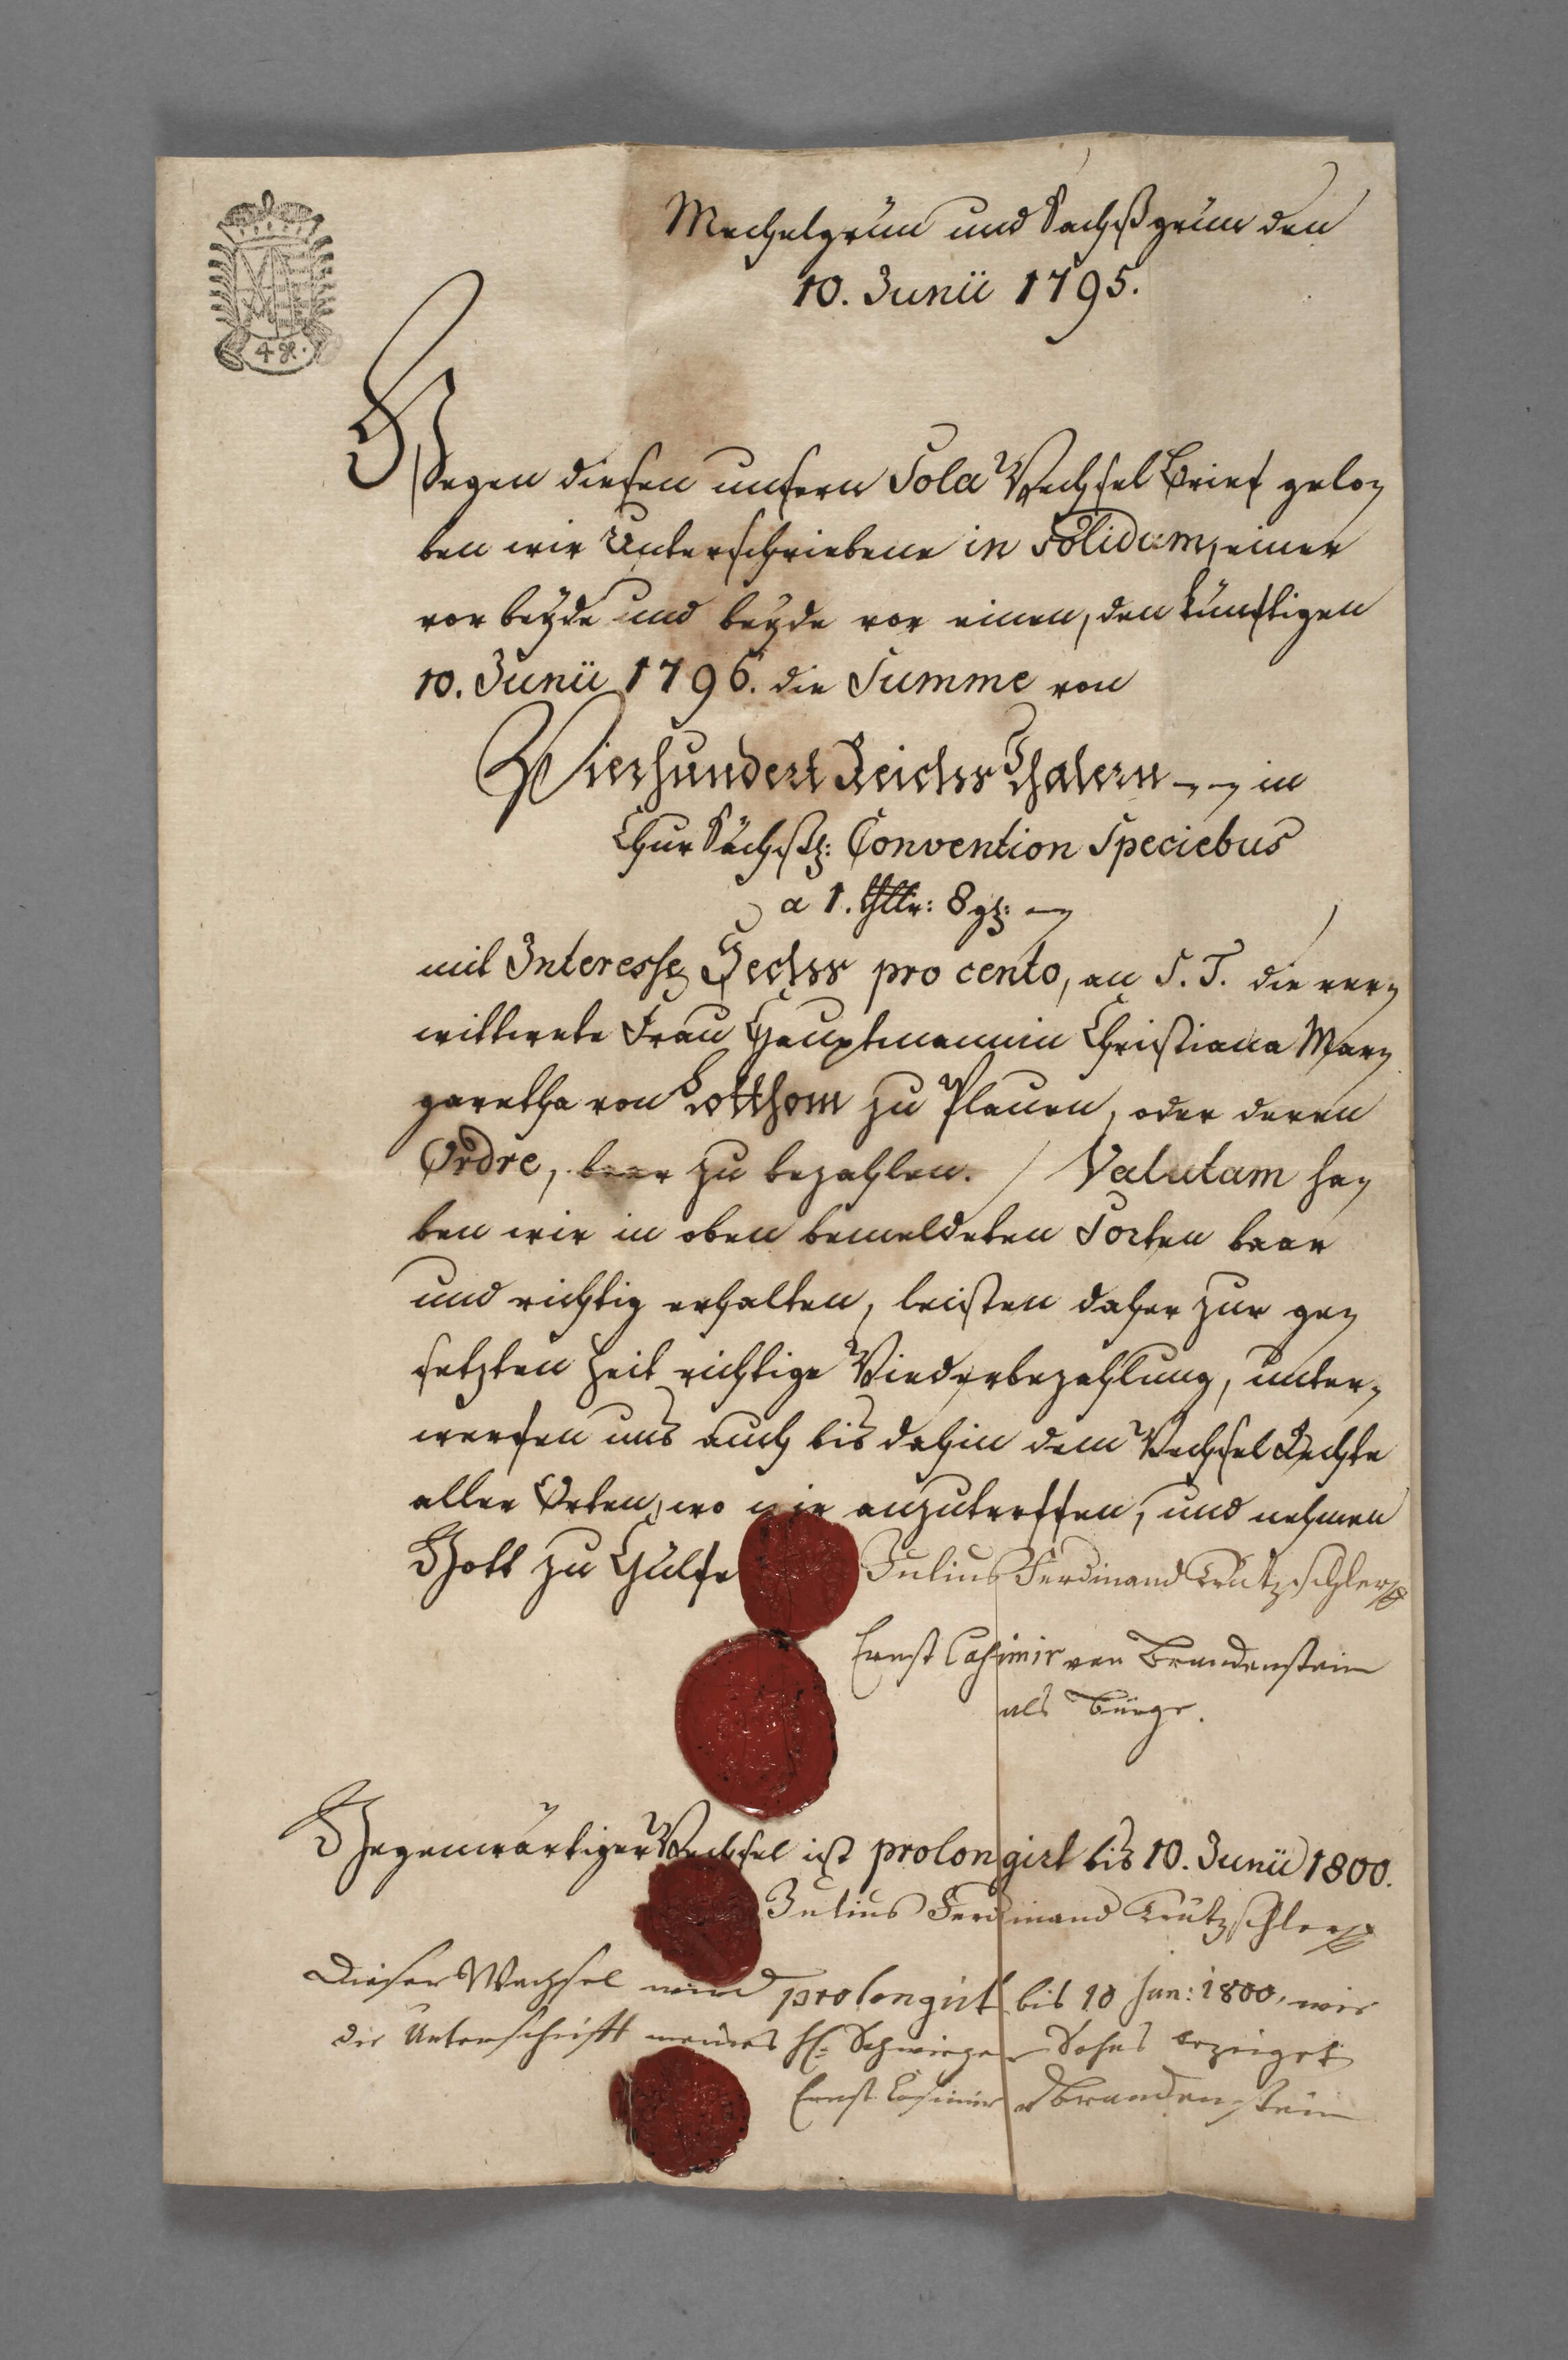 4 gr.
Mechelgrün und Sachßgrün den
10. Junii 1795.
Gegen diesen unsern Sola Wechsel Brief gelo-
ben wir Unterschriebene in Solidum, einer
vor beyde und beyde vor einen, den künftigen
10. Junii 1796. die Summe von
Vierhundert Reichs Thalern -- in
Chur Sächßl: Convention Speciebus
a 1. Thlr: 8 gl: -
mit Interesse Sechs pro cento, an S. T. die ver-
wittwete Frau Hauptmannin Christiana Mar-
garetha von Cotthom zu Plauen, oder deren
Ordre, baar zu bezahlen. / Valutam ha-
ben wir in oben bemeldeten Sorten baar
und richtig erhalten, leisten daher zur ge-
setzten Zeit richtige Wiederbezahlung, unter-
werfen uns auch bis dahin dem Wechsel Rechte
aller Orten, wo wir anzutreffen, und nehmen
Gott zu Hülfe
Julius Ferdinand Trützschler
Ernst Casimir von Brandenstein
als Bürge.
Gegenwärtiger Wechsel ist prolongirt bis 10. Junii 1800.
Julius Ferdinand Trützschler
Dieser Wechsel wird prolongirt bis 10 Jun: 1800, wie
die Unterschrifft meines H: Schwieger Sohns bezeiget
Ernst Casimir v Brandenstein